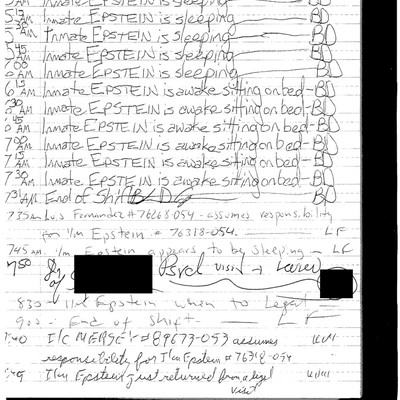 5 AM Inmate EPSTEIN is sleeping BD
5 15 AM Inmate EPSTEIN is sleeping BD
5 30 AM Inmate EPSTEIN is sleeping BD
5 45 AM Inmate EPSTEIN is sleeping BD
6 00 AM Inmate EPSTEIN is sleeping BD
6 15 AM Inmate EPSTEIN is awake sitting on bed - BD
6 30 AM Inmate EPSTEIN is awake sitting on bed - BD
6 45 AM Inmate EPSTEIN is awake sitting on bed - BD
7 00 AM Inmate EPSTEIN is awake sitting on bed - BD
7 15 AM Inmate EPSTEIN is awake sitting on bed - BD
7 30 AM Inmate EPSTEIN is awake sitting on bed - BD
7 31 AM End of Shift BD
735am Luis Fernandez # 76268-054 - assumes responsibility
for I/m Epstein # 76318-054. LF
745am. I/m Epstein appears to be sleeping LF
750 Psych visit + Leaves
830 - I/m Epstein when to Legal
900 - End of Shift - LF
I/C MERSEY # 89673-053 assumes
responsibility for I/m Epstein # 76318-054
I/m Epstein just returned from a legal
visit